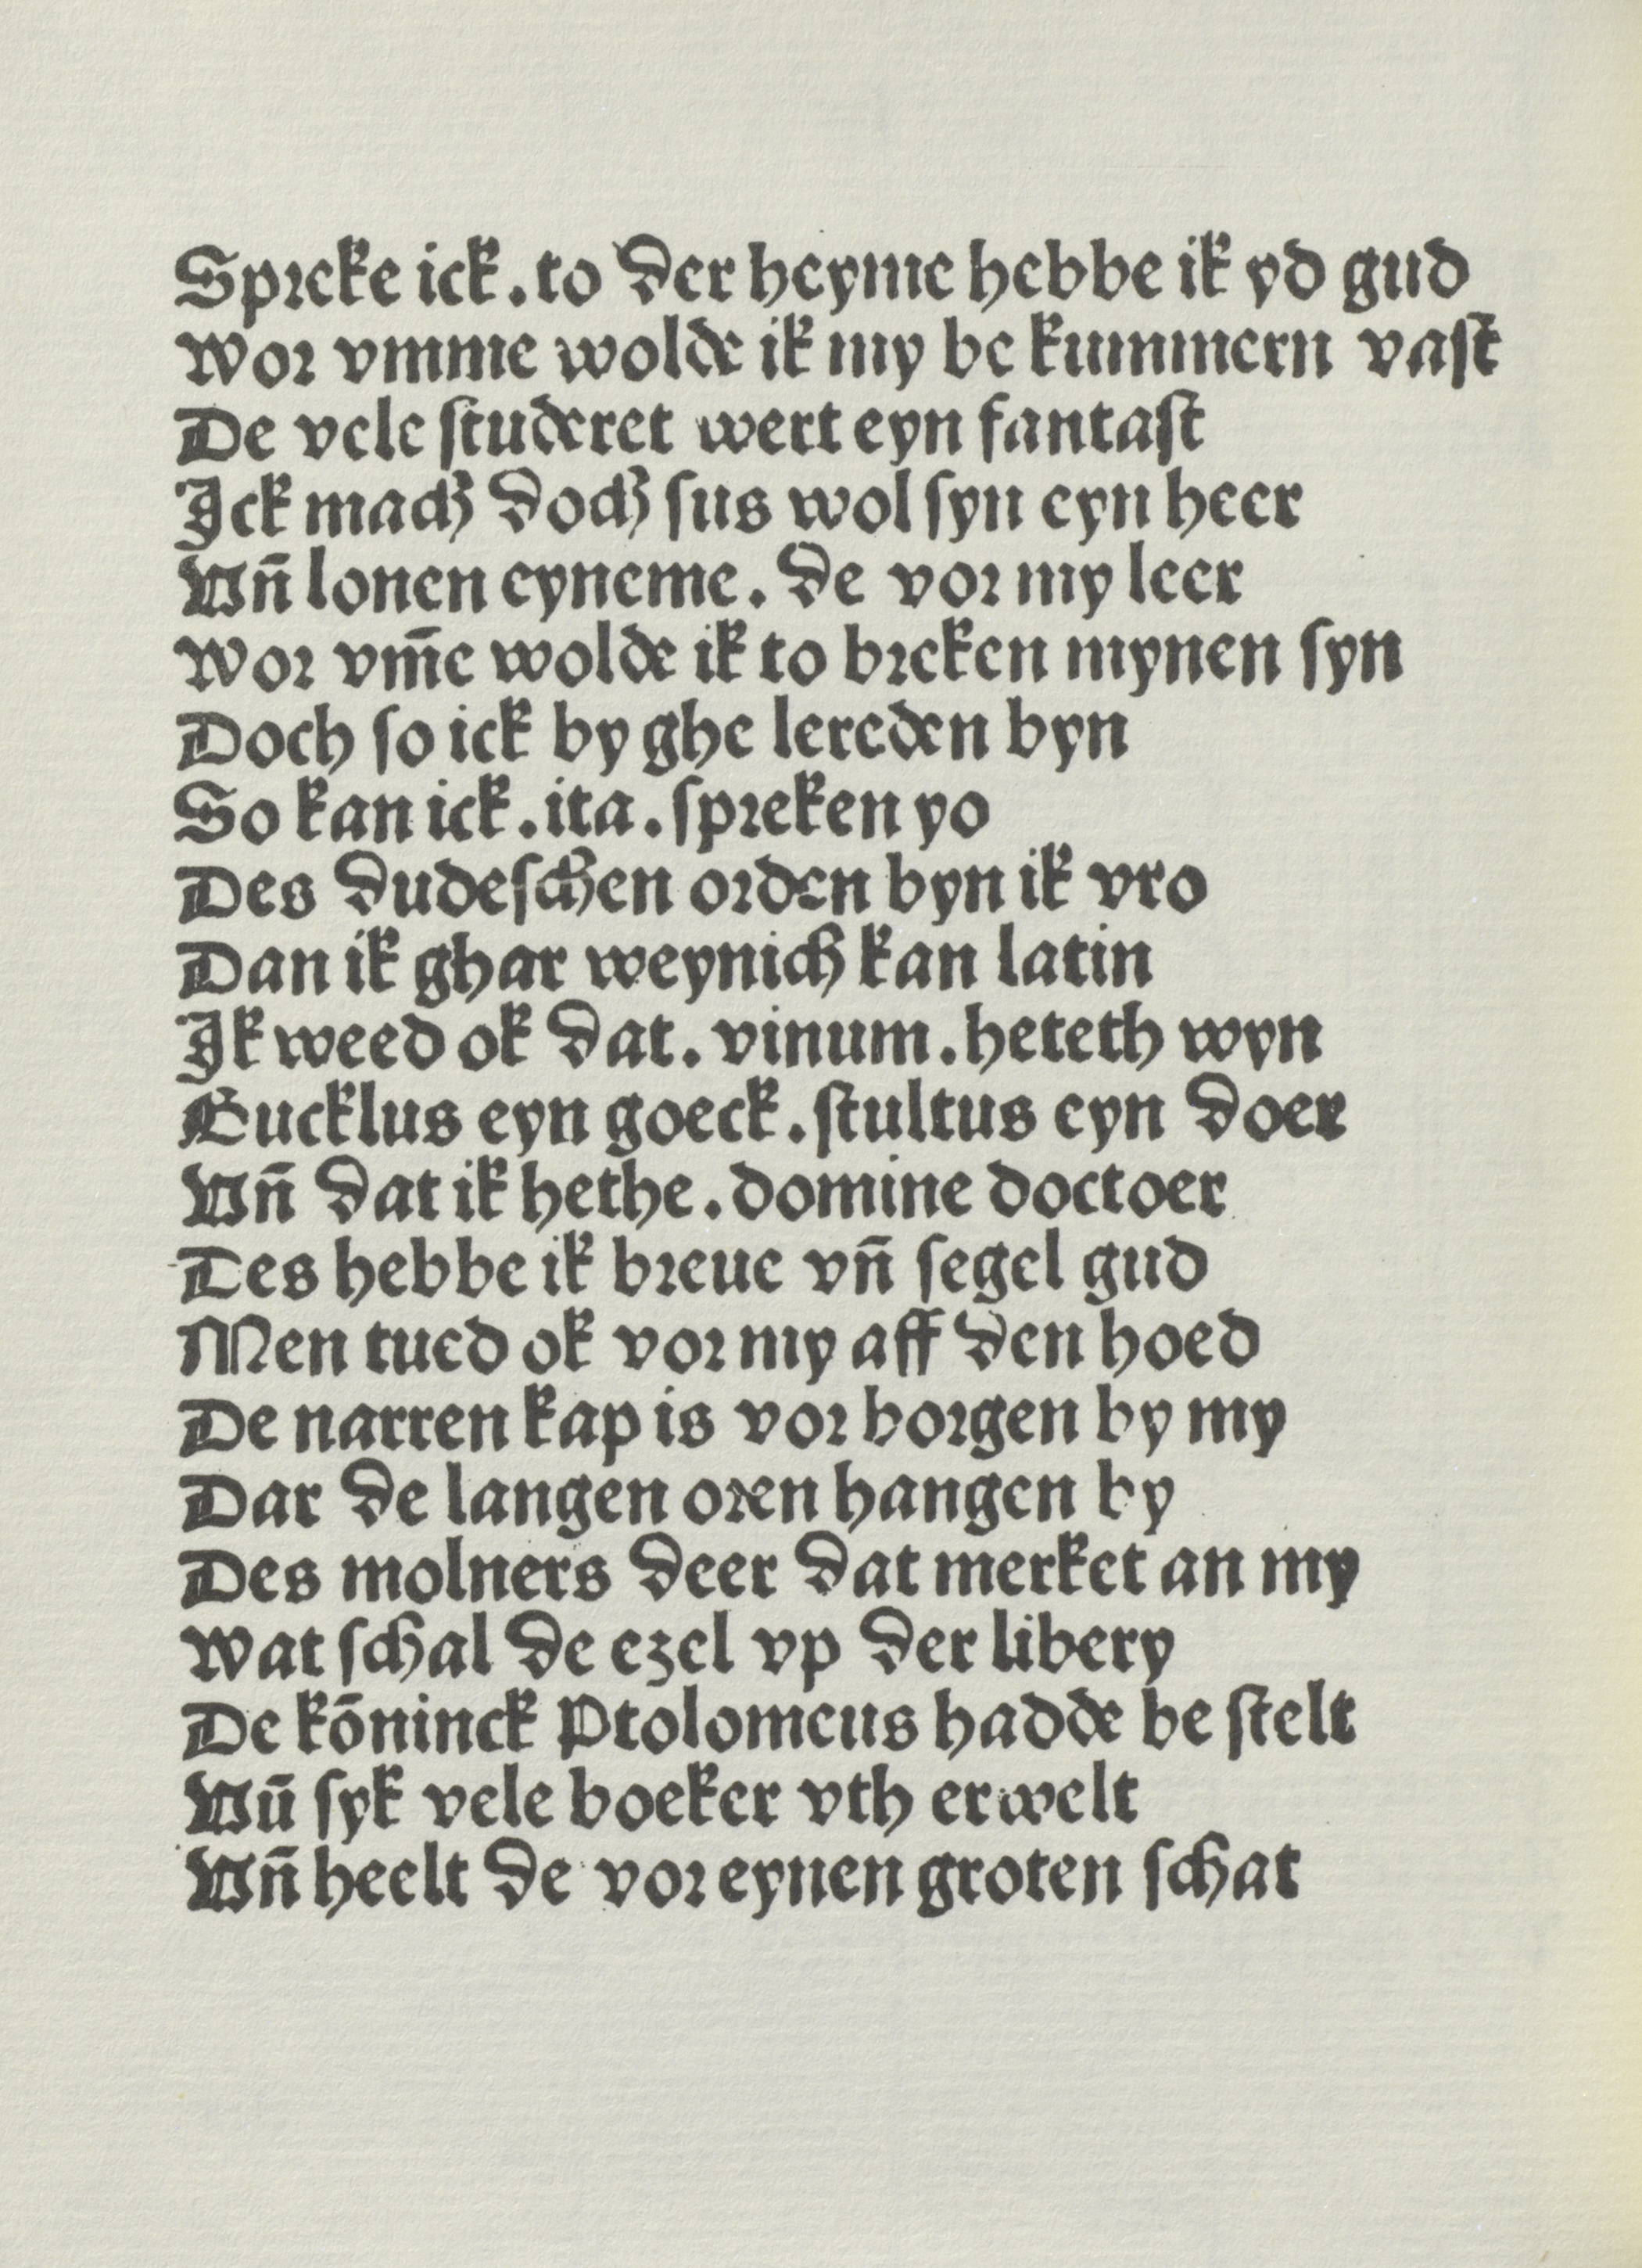 Spreke ick. to der heyme hebbe ik yd gud
Wor vmme wolde ik my be kummern vast
De vele studeret wert eyn fantast
Ick mach doch sus wol syn eyn heer
Vn̄ lonen eyneme. de vor my leer
Wor vm̄e wolde ik to breken mynen syn
Doch so ick by ghe lereden byn
So kan ick. ita. spreken yo
Des dudeschen orden byn ik vro
Dan ik ghar weynich kan latin
Ik weed ok dat. vinum. heteth wyn
Gucklus eyn goeck. stultus eyn doer
Vn̄ dat ik hethe. domine doctoer
Des hebbe ik breue vn̄ segel gud
Men tued ok vor my aff den hoed
De narren kap is vor borgen by my
Dar de langen oren hangen by
Des molners deer dat merket an my
Wat schal de ezel vp der libery
De kōninck Ptolomeus hadde be stelt
Vn̄ syk vele boeker vth erwelt
Vn̄ heelt de vor eynen groten schat